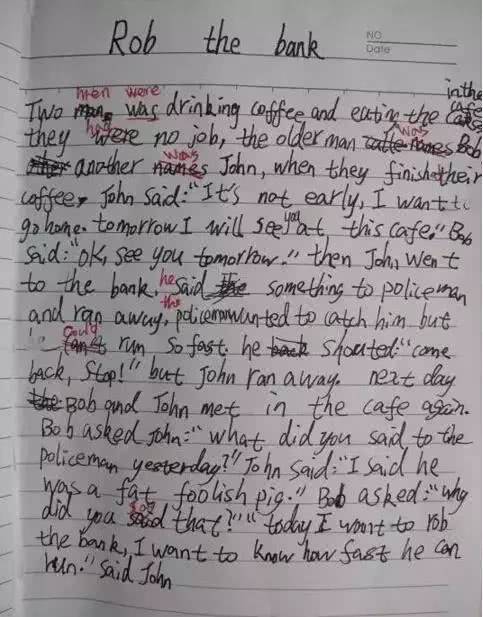 Rob the bank
NO.
Date
men were in the cafe
Two man was drinking coffee and eating the cakes
had was
they were no job, the older man names Bob
was
another names John, when they finish their
coffee, John said:"It's not early, I want to
you
go home. tomorrow I will see at this cafe." Bob
said:"OK, see you tomorrow." then John went
he
to the bank, said the something to policeman
the
and ran away, policeman wanted to catch him but
could
can't run so fast. he back shouted:"come
back, Stop!" but John ran away. next day
the Bob and John met in the cafe again.
Bob asked John:"what did you said to the
policeman yesterday?" John said:"I said he
was a fat foolish pig." Bob asked:"why
say
did you said that?" "today I want to rob
the bank, I want to know how fast he can
run." said John